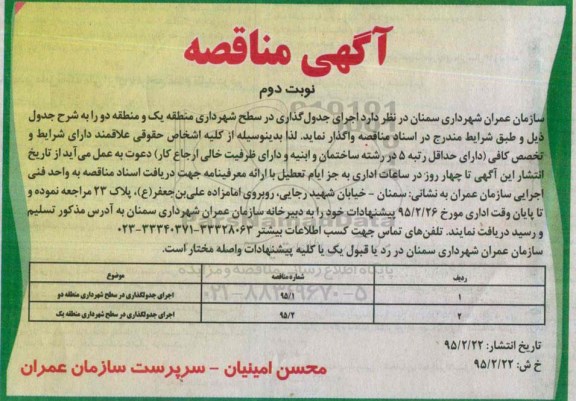 آگهی مناقصه
نوبت دوم
سازمان عمران شهرداری سمنان در نظر دارد اجرای جدول‌گذاری در سطح شهرداری منطقه یک و منطقه دو را به شرح جدول
ذیل و طبق شرایط مندرج در اسناد مناقصه واگذار نماید. لذا بدینوسیله از کلیه اشخاص حقوقی علاقمند دارای شرایط و
تخصص کافی (دارای حداقل رتبه ۵ در رشته ساختمان و ابنیه و دارای ظرفیت خالی ارجاع کار) دعوت به عمل می‌آید از تاریخ
انتشار این آگهی تا چهار روز در ساعات اداری به جز ایام تعطیل با ارائه معرفینامه جهت دریافت اسناد مناقصه به واحد فنی
اجرایی سازمان عمران به نشانی: سمنان - خیابان شهید رجایی، روبروی امامزاده علی‌بن‌جعفر(ع)، پلاک ۲۳ مراجعه نموده و
تا پایان وقت اداری مورخ ۹۵/۲/۲۶ پیشنهادات خود را به دبیرخانه سازمان عمران شهرداری سمنان به آدرس مذکور تسلیم
و رسید دریافت نمایند. تلفن‌های تماس جهت کسب اطلاعات بیشتر ۳۳۳۲۸۰۶۳-۰۲۳-۳۳۳۴۰۳۷۱
سازمان عمران شهرداری سمنان در رد یا قبول یک یا کلیه پیشنهادات واصله مختار است.
ردیف شماره مناقصه موضوع
۱ ۹۵/۱ اجرای جدولگذاری در سطح شهرداری منطقه دو
۲ ۹۵/۲ اجرای جدولگذاری در سطح شهرداری منطقه یک
تاریخ انتشار: ۹۵/۲/۲۲
خ ش: ۹۵/۲/۲۲
محسن امینیان - سرپرست سازمان عمران
پایگاه اطلاع رسانی مناقصه و مزایده
۰۲۱-۸۸۳۴۹۶۷۰-۵